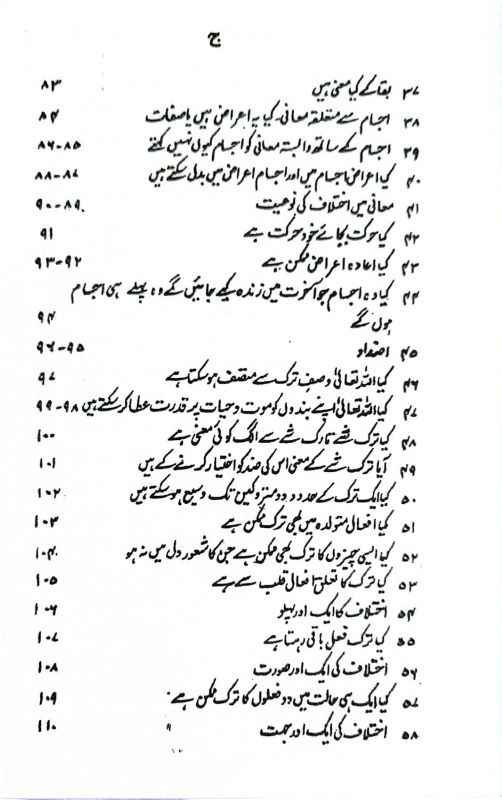 ج
۳۷ بقا کے کیا معنی ہیں ۸۳
۳۸ اجسام سے متعلقہ معانی۔ کیا یہ اعراض ہیں یا صفات ۸۴
۳۹ اجسام کے ساتھ وابستہ معانی کو اجسام کیوں نہیں کہتے ۸۵-۸۶
۴۰ کیا اعراض اجسام میں اور اجسام اعراض میں بدل سکتے ہیں ۸۷-۸۸
۴۱ معانی میں اختلاف کی نوعیت ۸۹-۹۰
۴۲ کیا حرکت بجائے خود حرکت ہے ۹۱
۴۳ کیا اعادہ اعراض ممکن ہے ۹۲-۹۳
۴۴ کیا وہ اجسام جو آخرت میں زندہ کیے جائیں گے وہ پہلے ہی اجسام
ہوں گے ۹۴
۴۵ اضداد ۹۵-۹۶
۴۶ کیا اللہ تعالیٰ وصف ترک سے متصف ہو سکتا ہے ۹۷
۴۷ کیا اللہ تعالیٰ اپنے بندوں کو موت و حیات پر قدرت عطا کر سکتے ہیں ۹۸-۹۹
۴۸ کیا ترک شے تارک شے سے الگ کوئی معنی ہے ۱۰۰
۴۹ آیا ترک شے کے معنی اس کی ضد کو اختیار کرنے کے ہیں ۱۰۱
۵۰ کیا ایک ترک کے حدود دو متروکین تک وسیع ہو سکتے ہیں ۱۰۲
۵۱ کیا افعال متولدہ میں بھی ترک ممکن ہے ۱۰۳
۵۲ کیا ایسی چیزوں کا ترک بھی ممکن ہے جن کا شعور دل میں نہ ہو ۱۰۴
۵۳ کیا ترک کا تعلق افعال قلب سے ہے ۱۰۵
۵۴ اختلاف کا ایک اور پہلو ۱۰۶
۵۵ کیا ترک فعل باقی رہتا ہے ۱۰۷
۵۶ اختلاف کی ایک اور صورت ۱۰۸
۵۷ کیا ایک ہی حالت میں دو فعلوں کا ترک ممکن ہے۔ ۱۰۹
۵۸ اختلاف کی ایک اور جہت " ۱۱۰